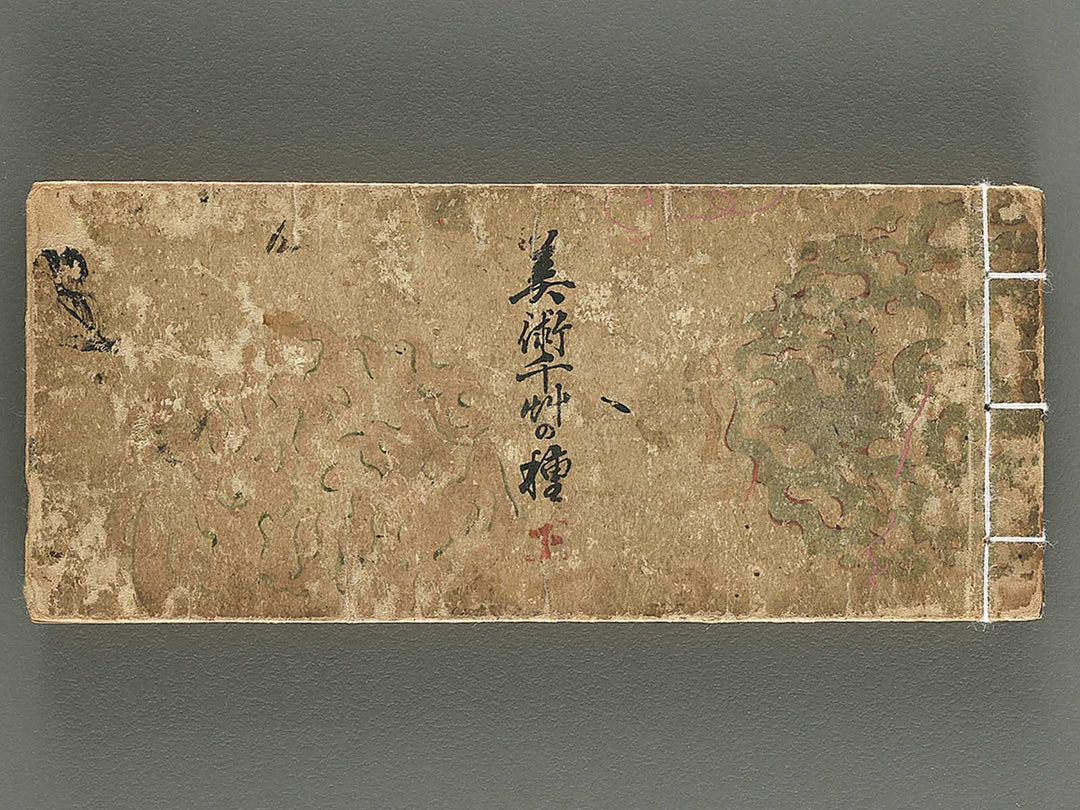 美術千艸の種
下